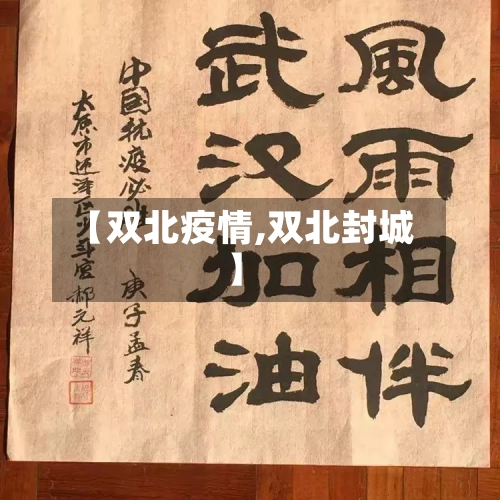 風雨相伴
武汉加油
中国抗疫必胜 庚子孟春
太原市迎泽区少年宫 郝元祥
【双北疫情,双北封城
】